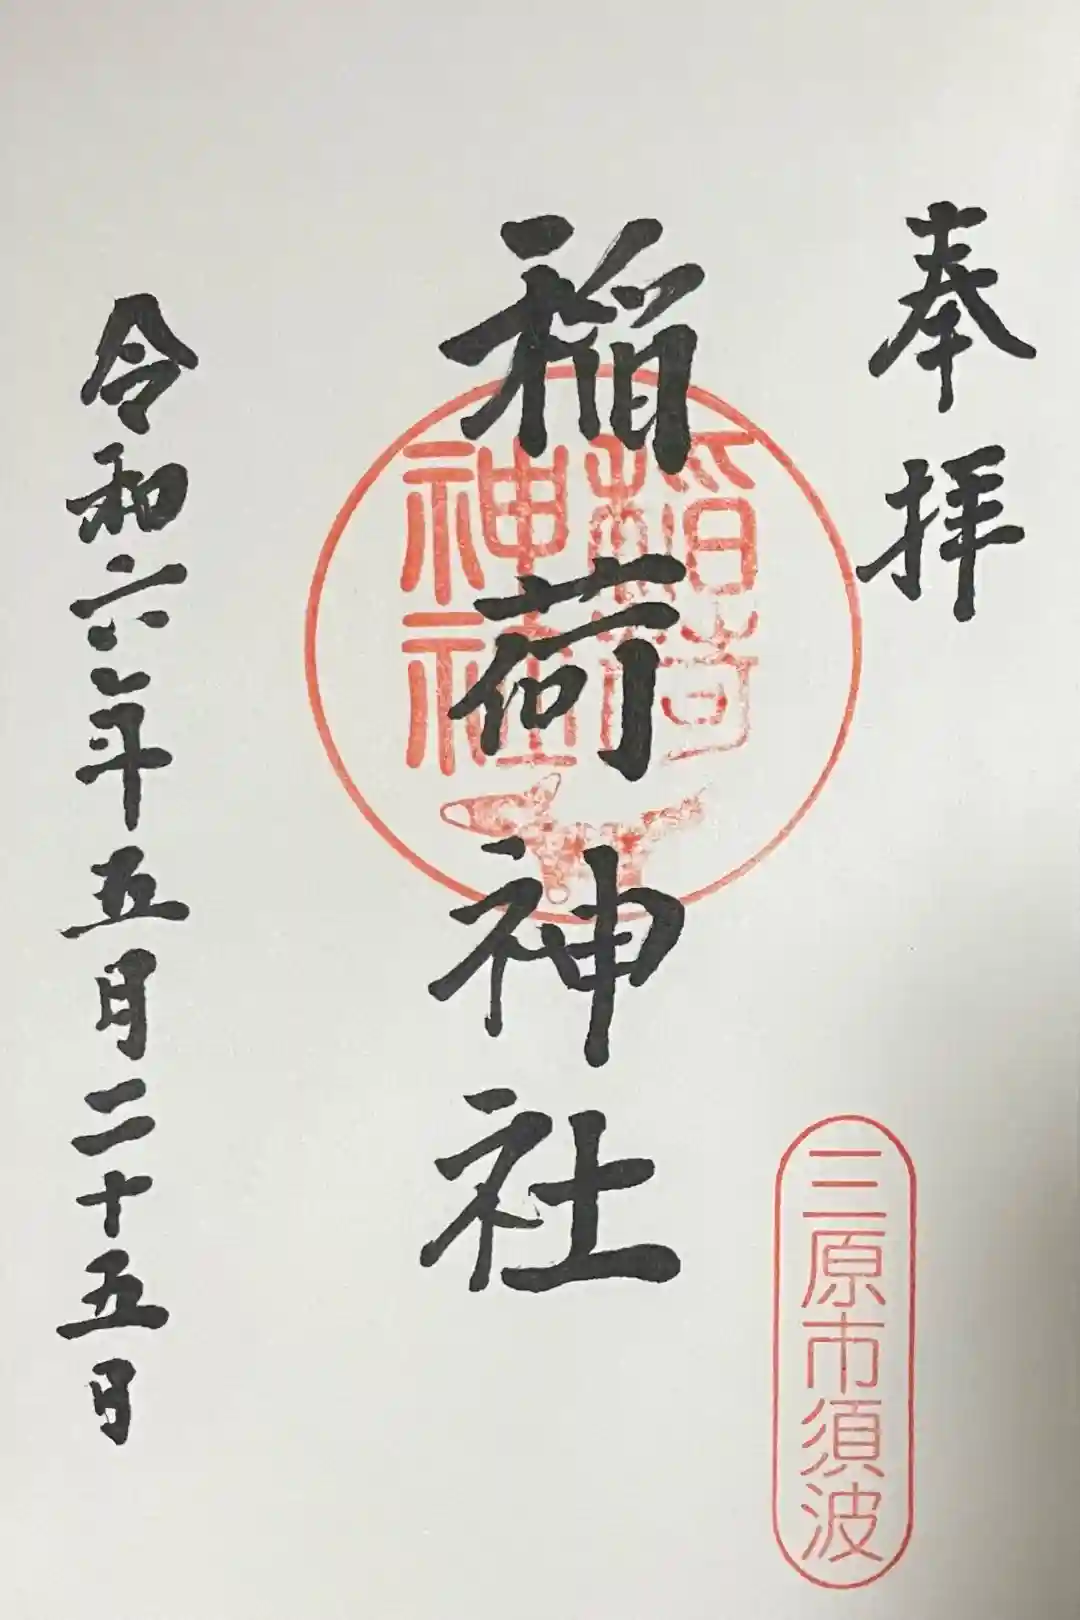 奉拝
三原市須波
稲荷神社
稲荷
神社
令和六年五月二十五日